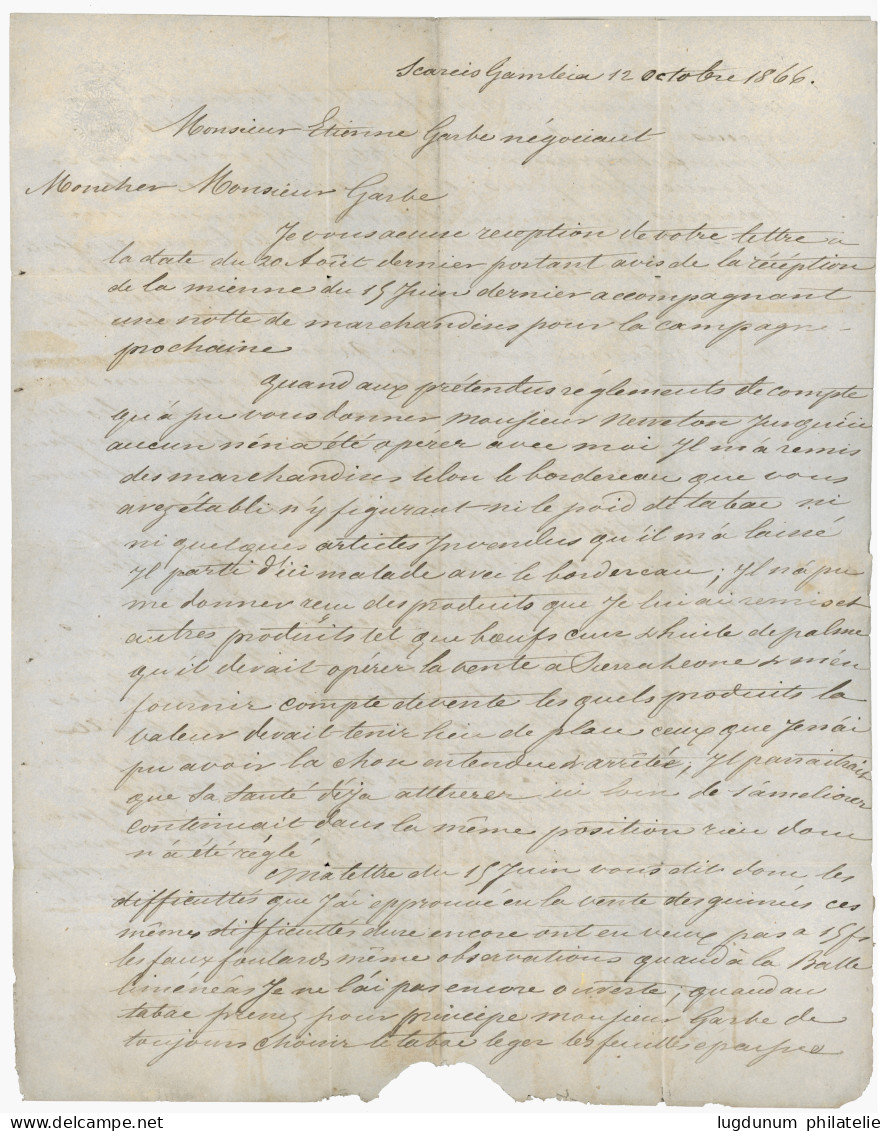 Scarcis Gambia 12 octobre 1866.
Monsieur Etienne Garbe négociant
Moncher Monsieur Garbe
Je vous accuse reception de votre lettre à
la date du 20 Août dernier portant avis de la réception
de la mienne du 15 Juin dernier accompagnant
une notte de marchandises pour la campagne
prochaine
quand aux prétendus réglements de compte
qu'à pu vous donner monsieur Newton Jusqu'ici
aucun n'en a été operer avec moi Il m'a remis
des marchandises selon le bordereau que vous
avez établi n'y figurant ni le poid de tabac ni
ni quelques articles Invendus qu'il m'a laissé
Il parti d'ici malade avec le bordereau; Il n'a pu
me donner reçu des produits que Je lui ai remis et
autres produits tel que bœufs cuir & huile de palme
qu'il devait opérer la vente a Sierra leone & m'en
fournir compte de vente les quels produits la
valeur devait tenir lieu de plau ceux que Je n'ai
pu avoir la chose entendue & arrêtée; Il paraitrait
que sa santé déja altérer ici loin de s'améliorer
continuait dans la même position rien donc
n'a été réglé
Ma lettre du 15 Juin vous dit donc les
difficultés que J'ai epprouvé en la vente des guinées ces
mêmes difficultés dure encore ont en veux pas a 15 fs
les faux foulards même observations quand à la Balle
liménéas Je ne l'ai pas encore ouverte; quand au
tabac prenez pour principe monsieur Garbe de
toujours choisir le tabac leger les feuilles
www.delcampe.net
lugdunum philatelie